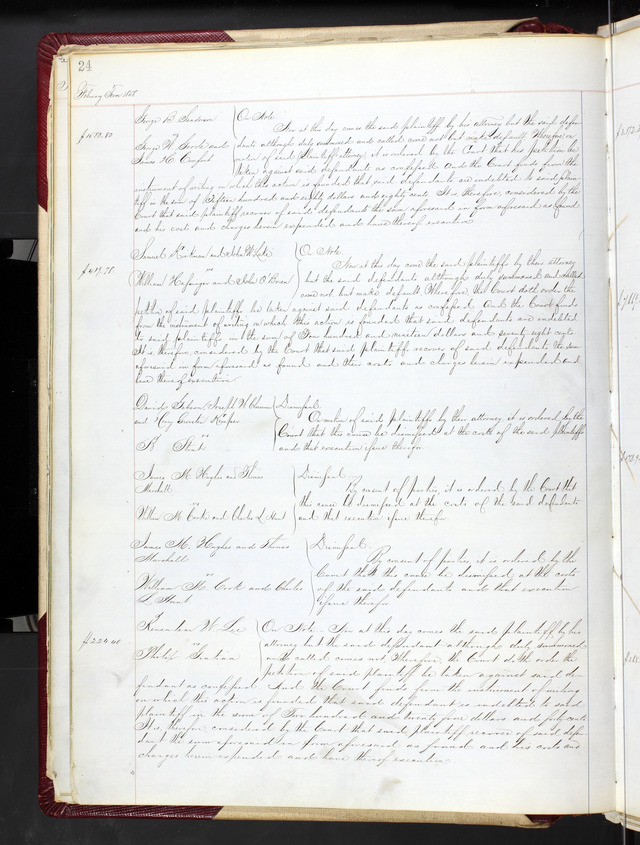 24
February Term 1858
George B.
On Note
Now at this day comes the said plaintiff by his attorney but the said defen
$1580.80
George W. and
dants although duly summoned and called come not but make default Therefore on
James H.
motion of said plaintiffs attorney it is ordered by the Court that his petition be
taken against said defendants as confessed And the Court finds from the
instrument of writing on which this action is founded that said defendants are indebted to said plain
tiff in the sum of Fifteen hundred and eighty dollars and eighty cents It is therefore considered by the
Court that said plaintiff recover of said defendants the sum aforesaid in form aforesaid as found
and his costs and charges herein expended and have thereof execution
Samuel and John W.
On Note
Now at this day come the said plaintiffs by their attorney
$419.78
vs
William and John O'Brien
but the said defendants although duly summoned and called
come not, but make default Wherefore the Court doth order the
petition of said plaintiffs be taken against said defendants as confessed And the Court finds
from the instrument of writing on which this action is founded that said defendants are indebted
to said plaintiffs in the sum of Four hundred and nineteen dollars and seventy eight cents
It is therefore considered by the Court that said plaintiffs recover of said defendants the sum
aforesaid in form aforesaid as found and their costs and charges herein expended and
have thereof execution
David
Dismissed
and
On motion of said plaintiffs by their attorney it is ordered by the
vs
Court that this cause be dismissed at the costs of the said plaintiffs
and that execution issue therefor
James M. Hughes and Thomas
Dismissed
Marshall
By consent of parties it is ordered by the Court that
vs
this cause be dismissed at the costs of the said defendants
William M. Cook and Charles L. Hunt
and that execution issue therefor
James M. Hughes and Thomas
Dismissed
Marshall
By consent of parties it is ordered by the
vs
Court that the cause be dismissed at the costs
William M. Cook and Charles
of the said defendants and that execution
L. Hunt
issue therefor
W. Lee
On Note Now at this day comes the said plaintiff by his
$224.40
vs
attorney but the said defendant although duly summoned
Philip
and called comes not Wherefore the Court doth order the
petition of said plaintiff be taken against said de
fendant as confessed And the Court finds from the instrument of writing
on which this action is founded that said defendant is indebted to said
plaintiff in the sum of Two hundred and twenty four dollars and forty cents
It is therefore considered by the Court that said plaintiff recover of said defen
dant the sum aforesaid in form aforesaid as found and his costs and
charges herein expended and have thereof execution